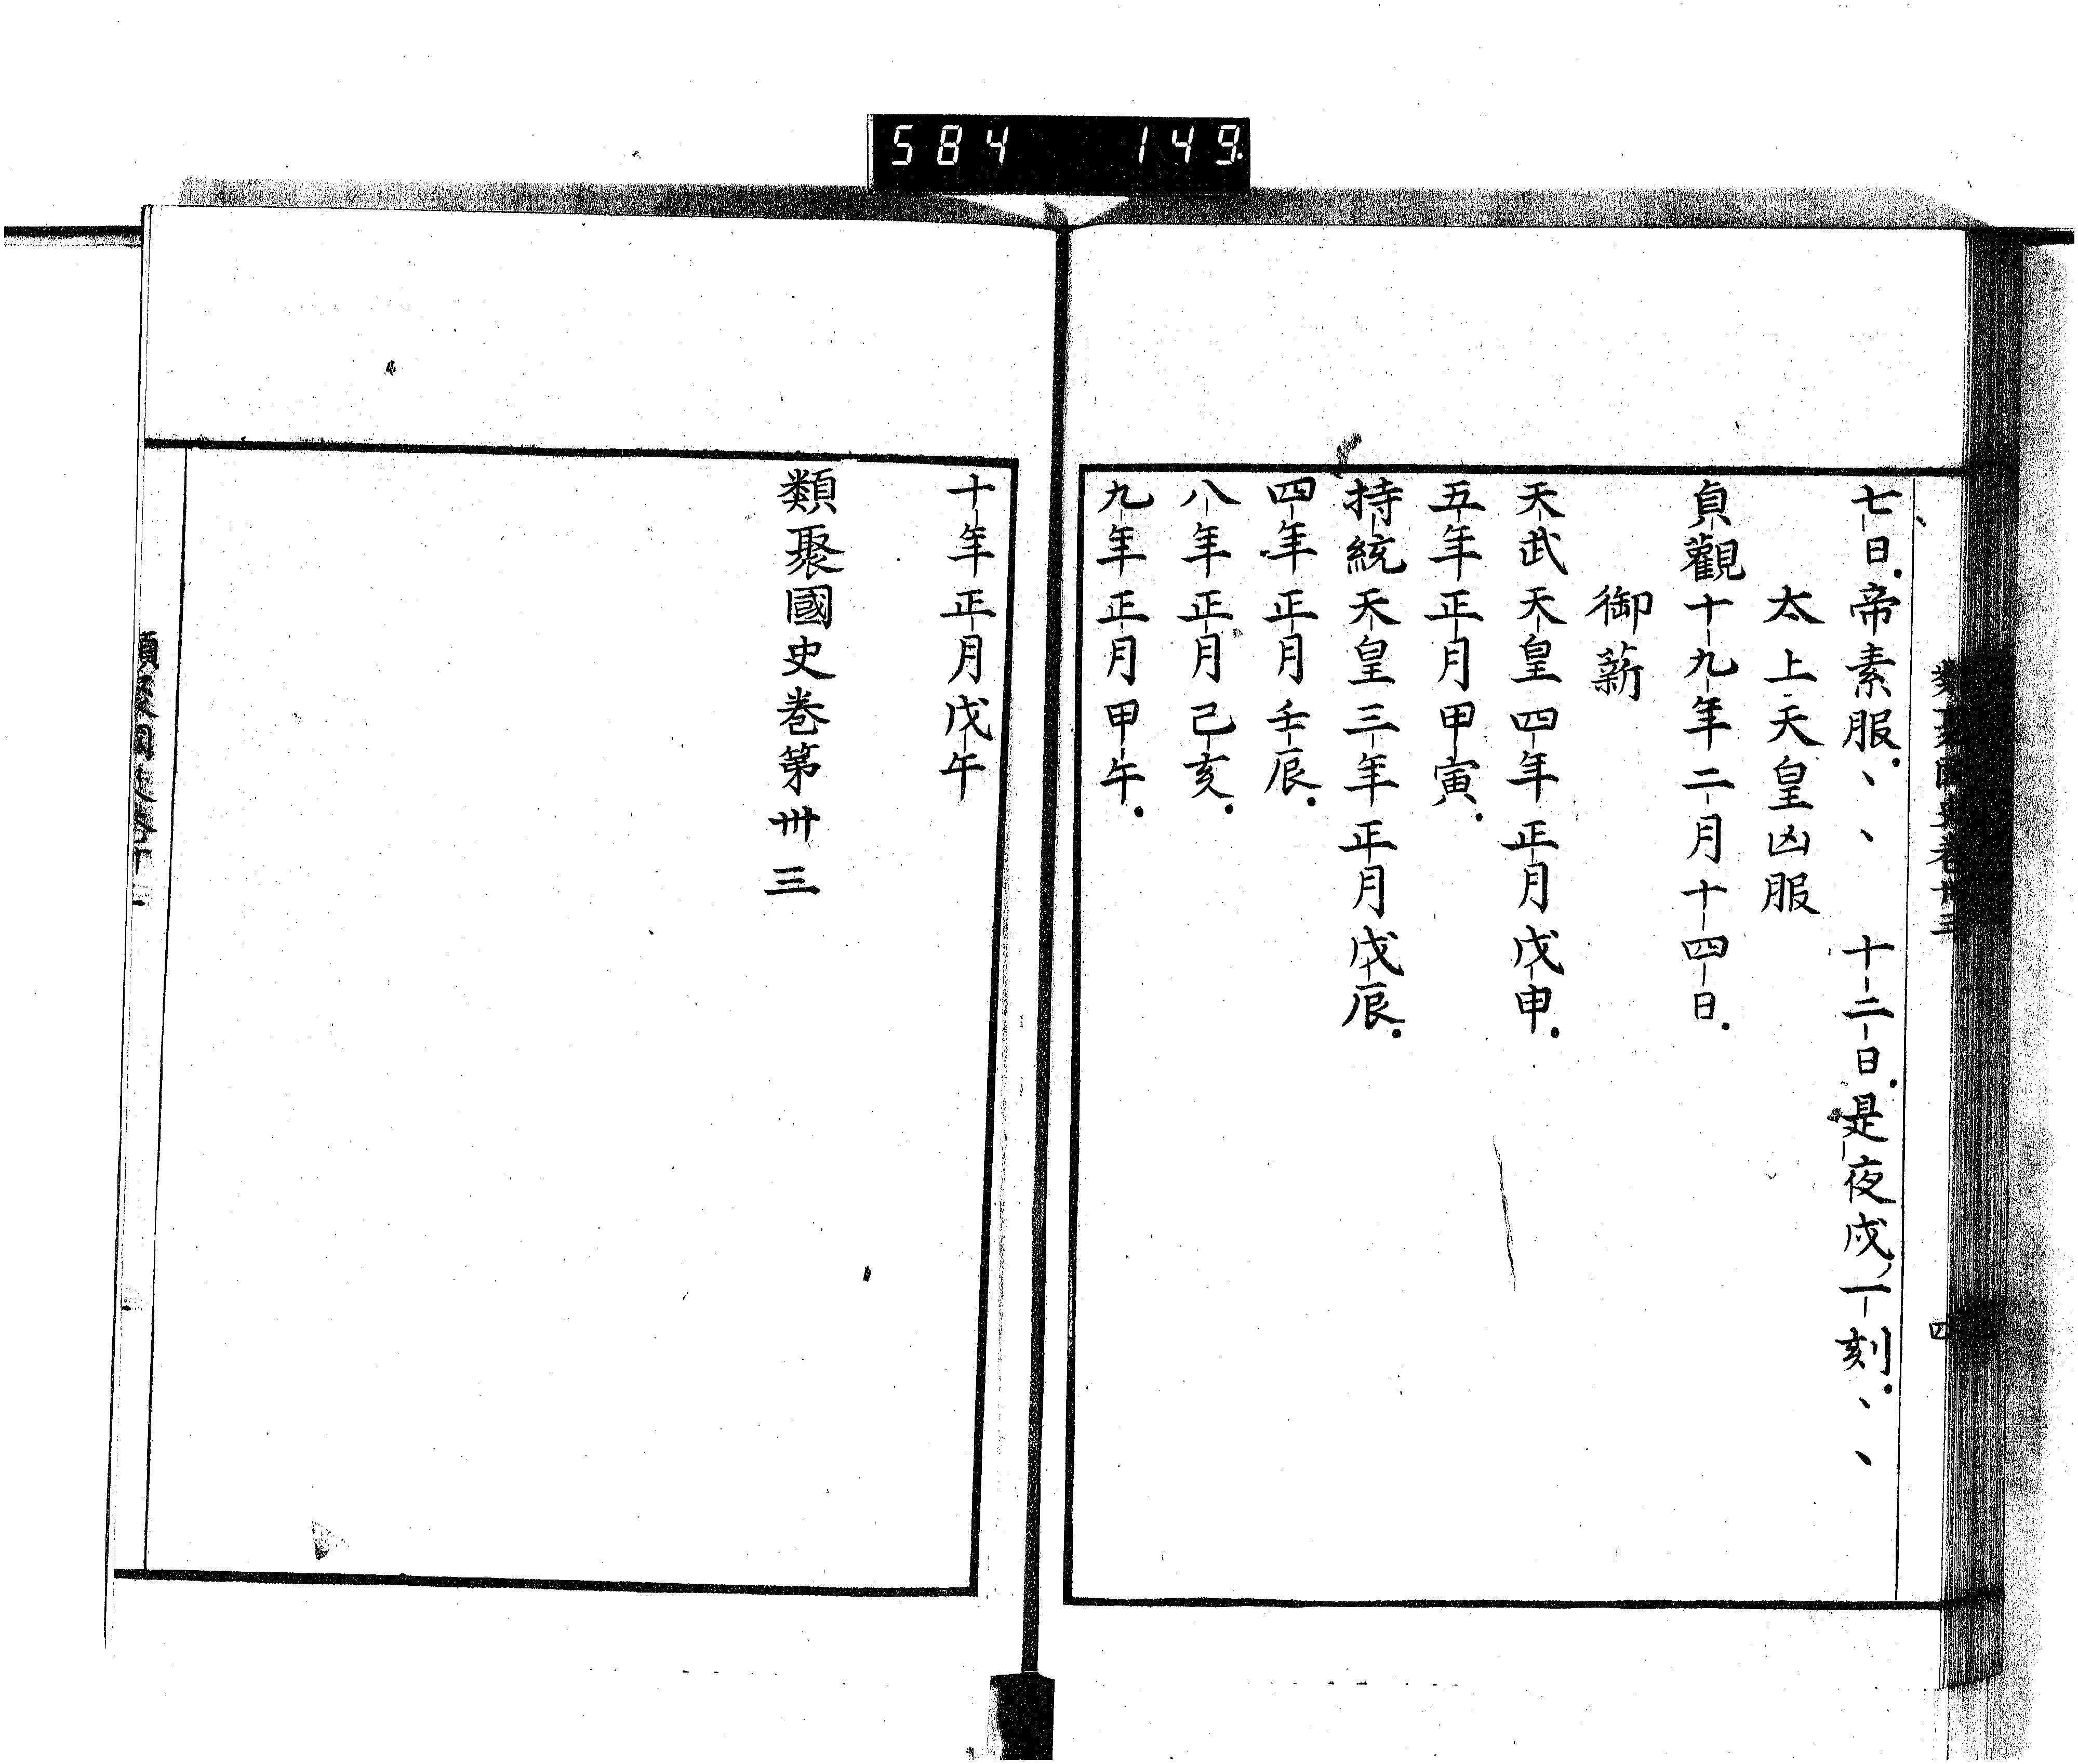 584 149
七日帝素服、、 十二日是夜戌一刻、、
太上天皇凶服
貞觀十九年二月十四日
御薪
天武天皇四年正月戊申
五年正月甲寅
持統天皇三年正月戊辰
四年正月壬辰
八年正月己亥
九年正月甲午
十年正月戊午
類聚國史卷第卅三
四